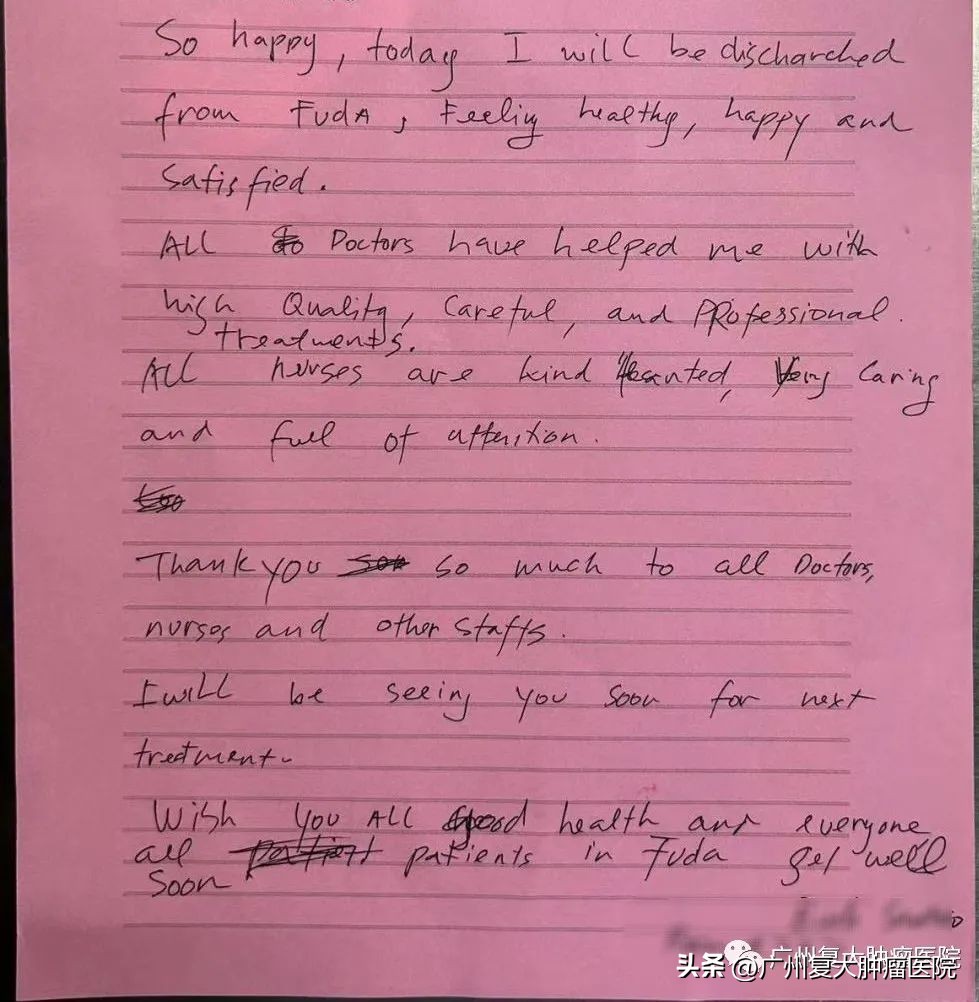 So happy, today I will be discharched
from FUDA, Feeling healthy, happy and
Satisfied.
ALL Doctors have helped me with
high Quality, Careful, and PROfessional.
treatments.
ALL nurses are kind hearted, Very Caring
and full of attention.
Thank you so much to all Doctors,
nurses and other staffs.
I will be seeing you soon for next
treatment.
Wish you ALL good health and everyone
all patients in Fuda get well
Soon
广州复大肿瘤医院
头条 @广州复大肿瘤医院